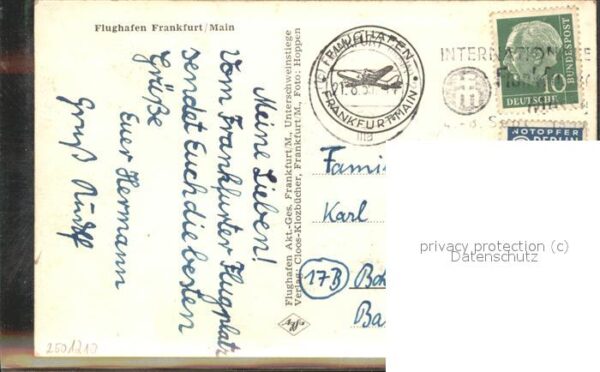 Flughafen Frankfurt/Main
Meine Lieben!
Vom Frankfurter Flugplatz
sendet Euch die besten
Grüße
Euer Hermann
Gruß
Flughafen Akt.-Ges. Frankfurt/M., Unterschweinstiege
Verlag: Cloos-Klozbücher, Frankfurt/M., Foto: Hoppen
Agfa
FLUGHAFEN
FRANKFURT MAIN
INTERNATION
10
DEUTSCHE
NOTOPFER
BERLIN
Famil
Karl
17B
Ba
privacy protection (c)
Datenschutz
2501210